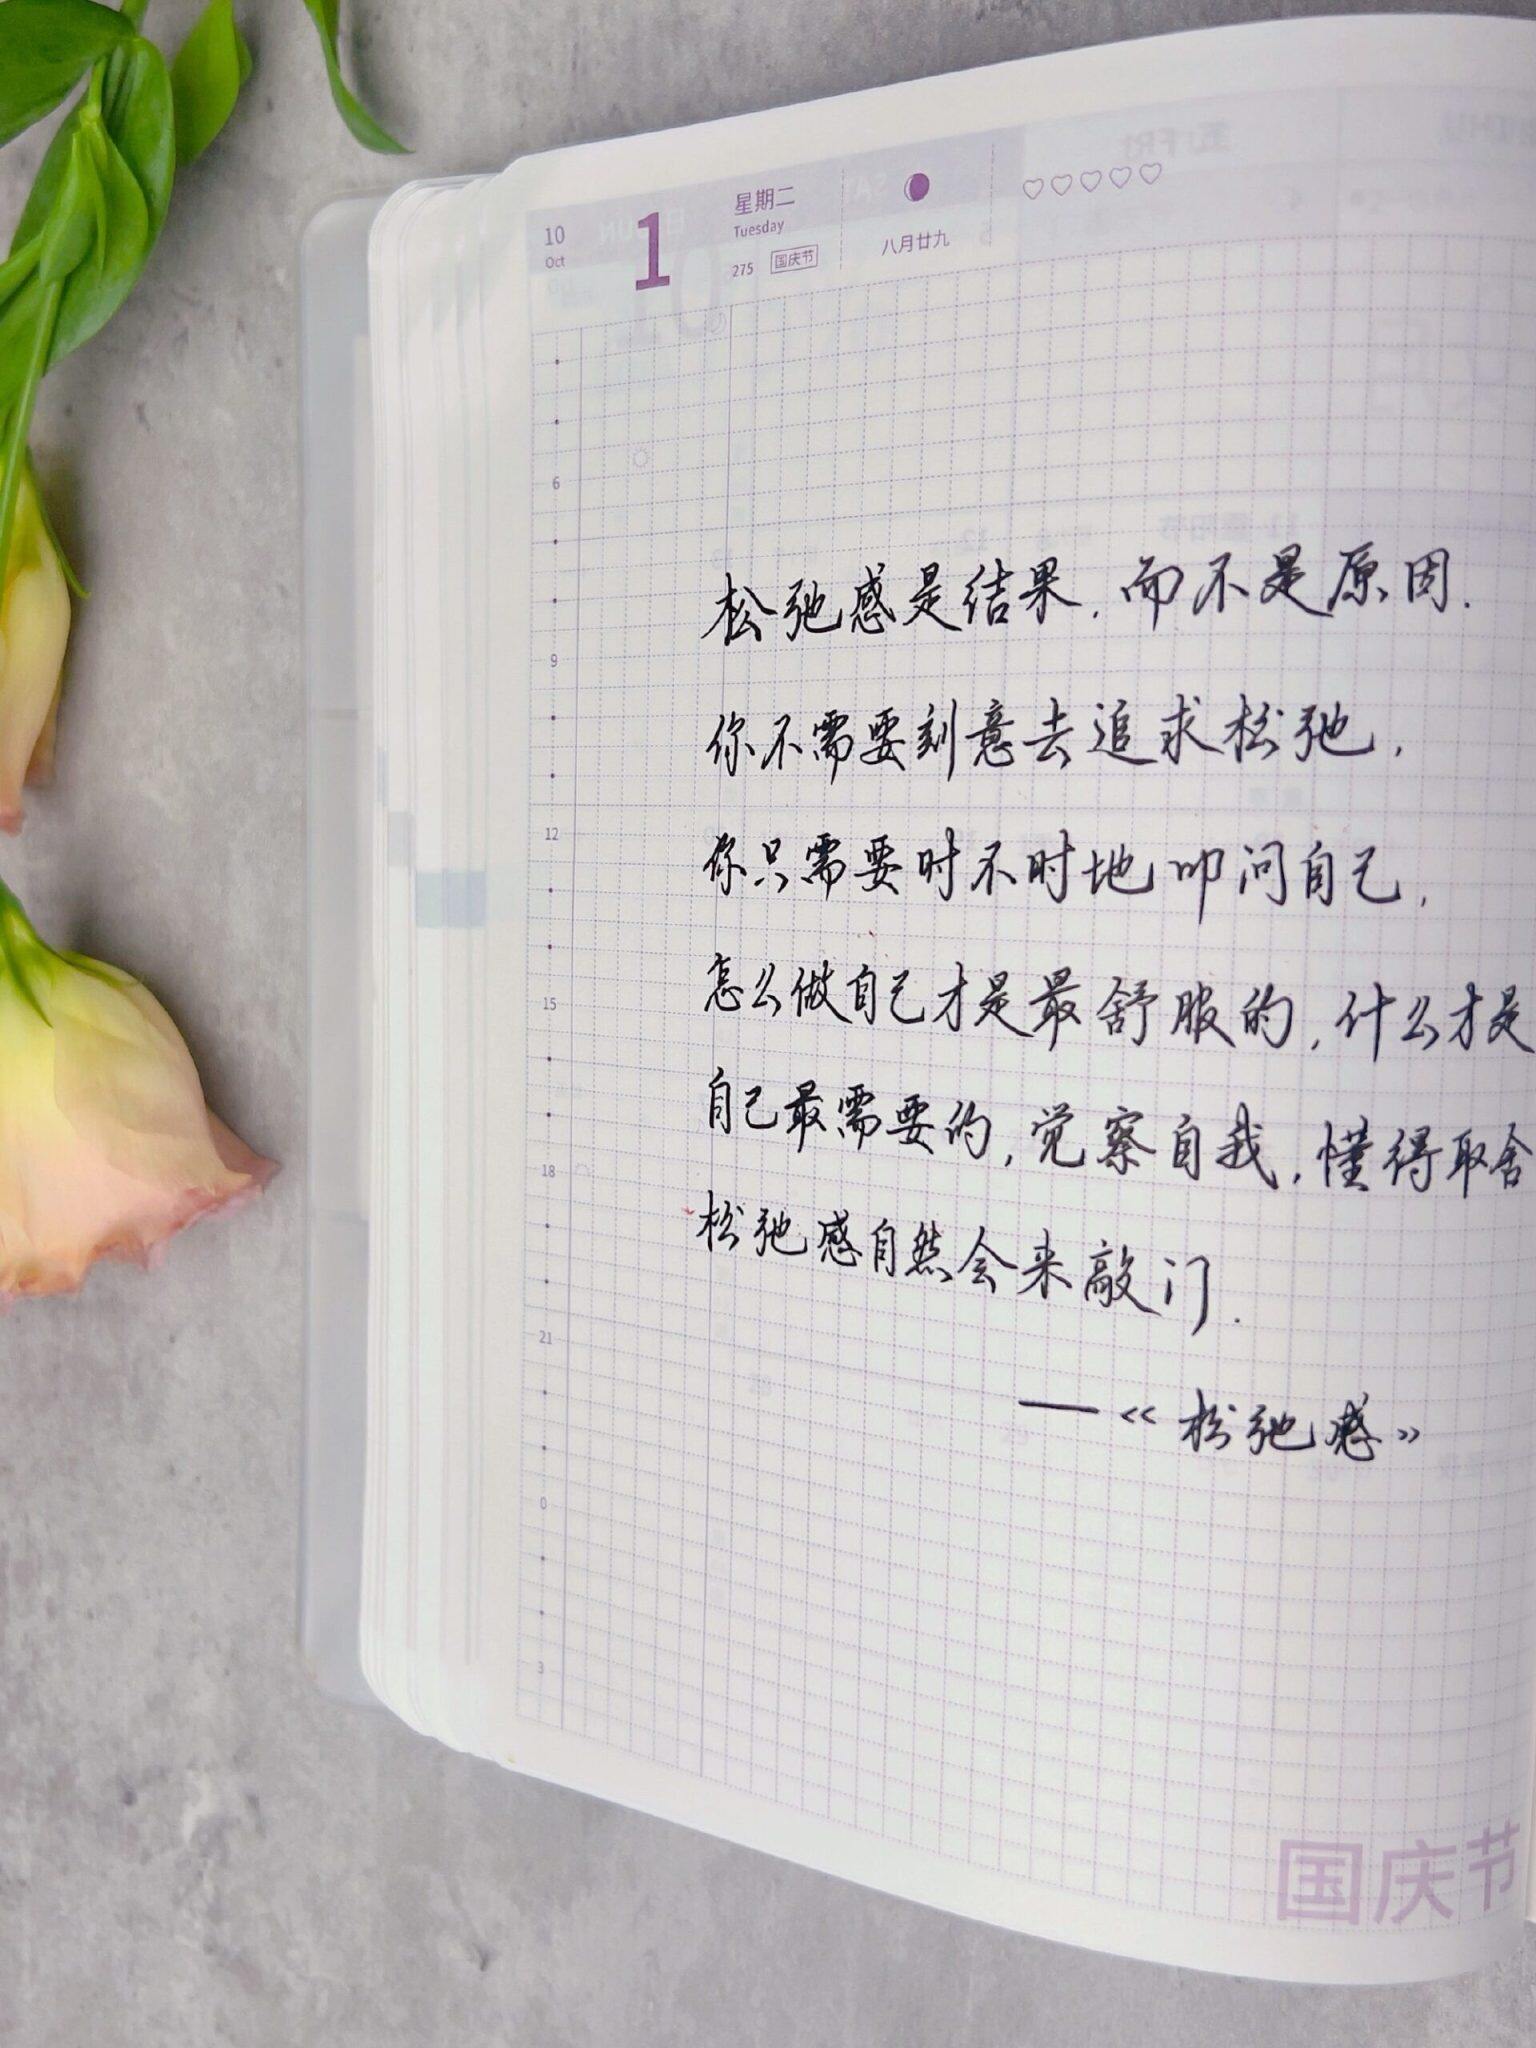 10
Oct
1
星期二
Tuesday
275 国庆节
八月廿九
6
9
12
15
18
21
0
3
松弛感是结果.而不是原因.
你不需要刻意去追求松弛,
你只需要时不时地叩问自己,
怎么做自己才是最舒服的,什么才是
自己最需要的,觉察自我,懂得取舍
松弛感自然会来敲门.
——《松弛感》
国庆节